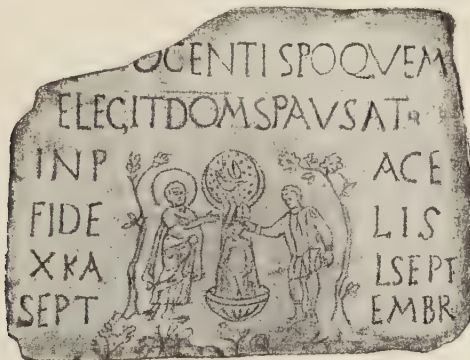 OCENTI SPOQVEM
ELEGITDOMSPAVSAT
INP ACE
FIDE LIS
XKA LSEPT
SEPT EMBR